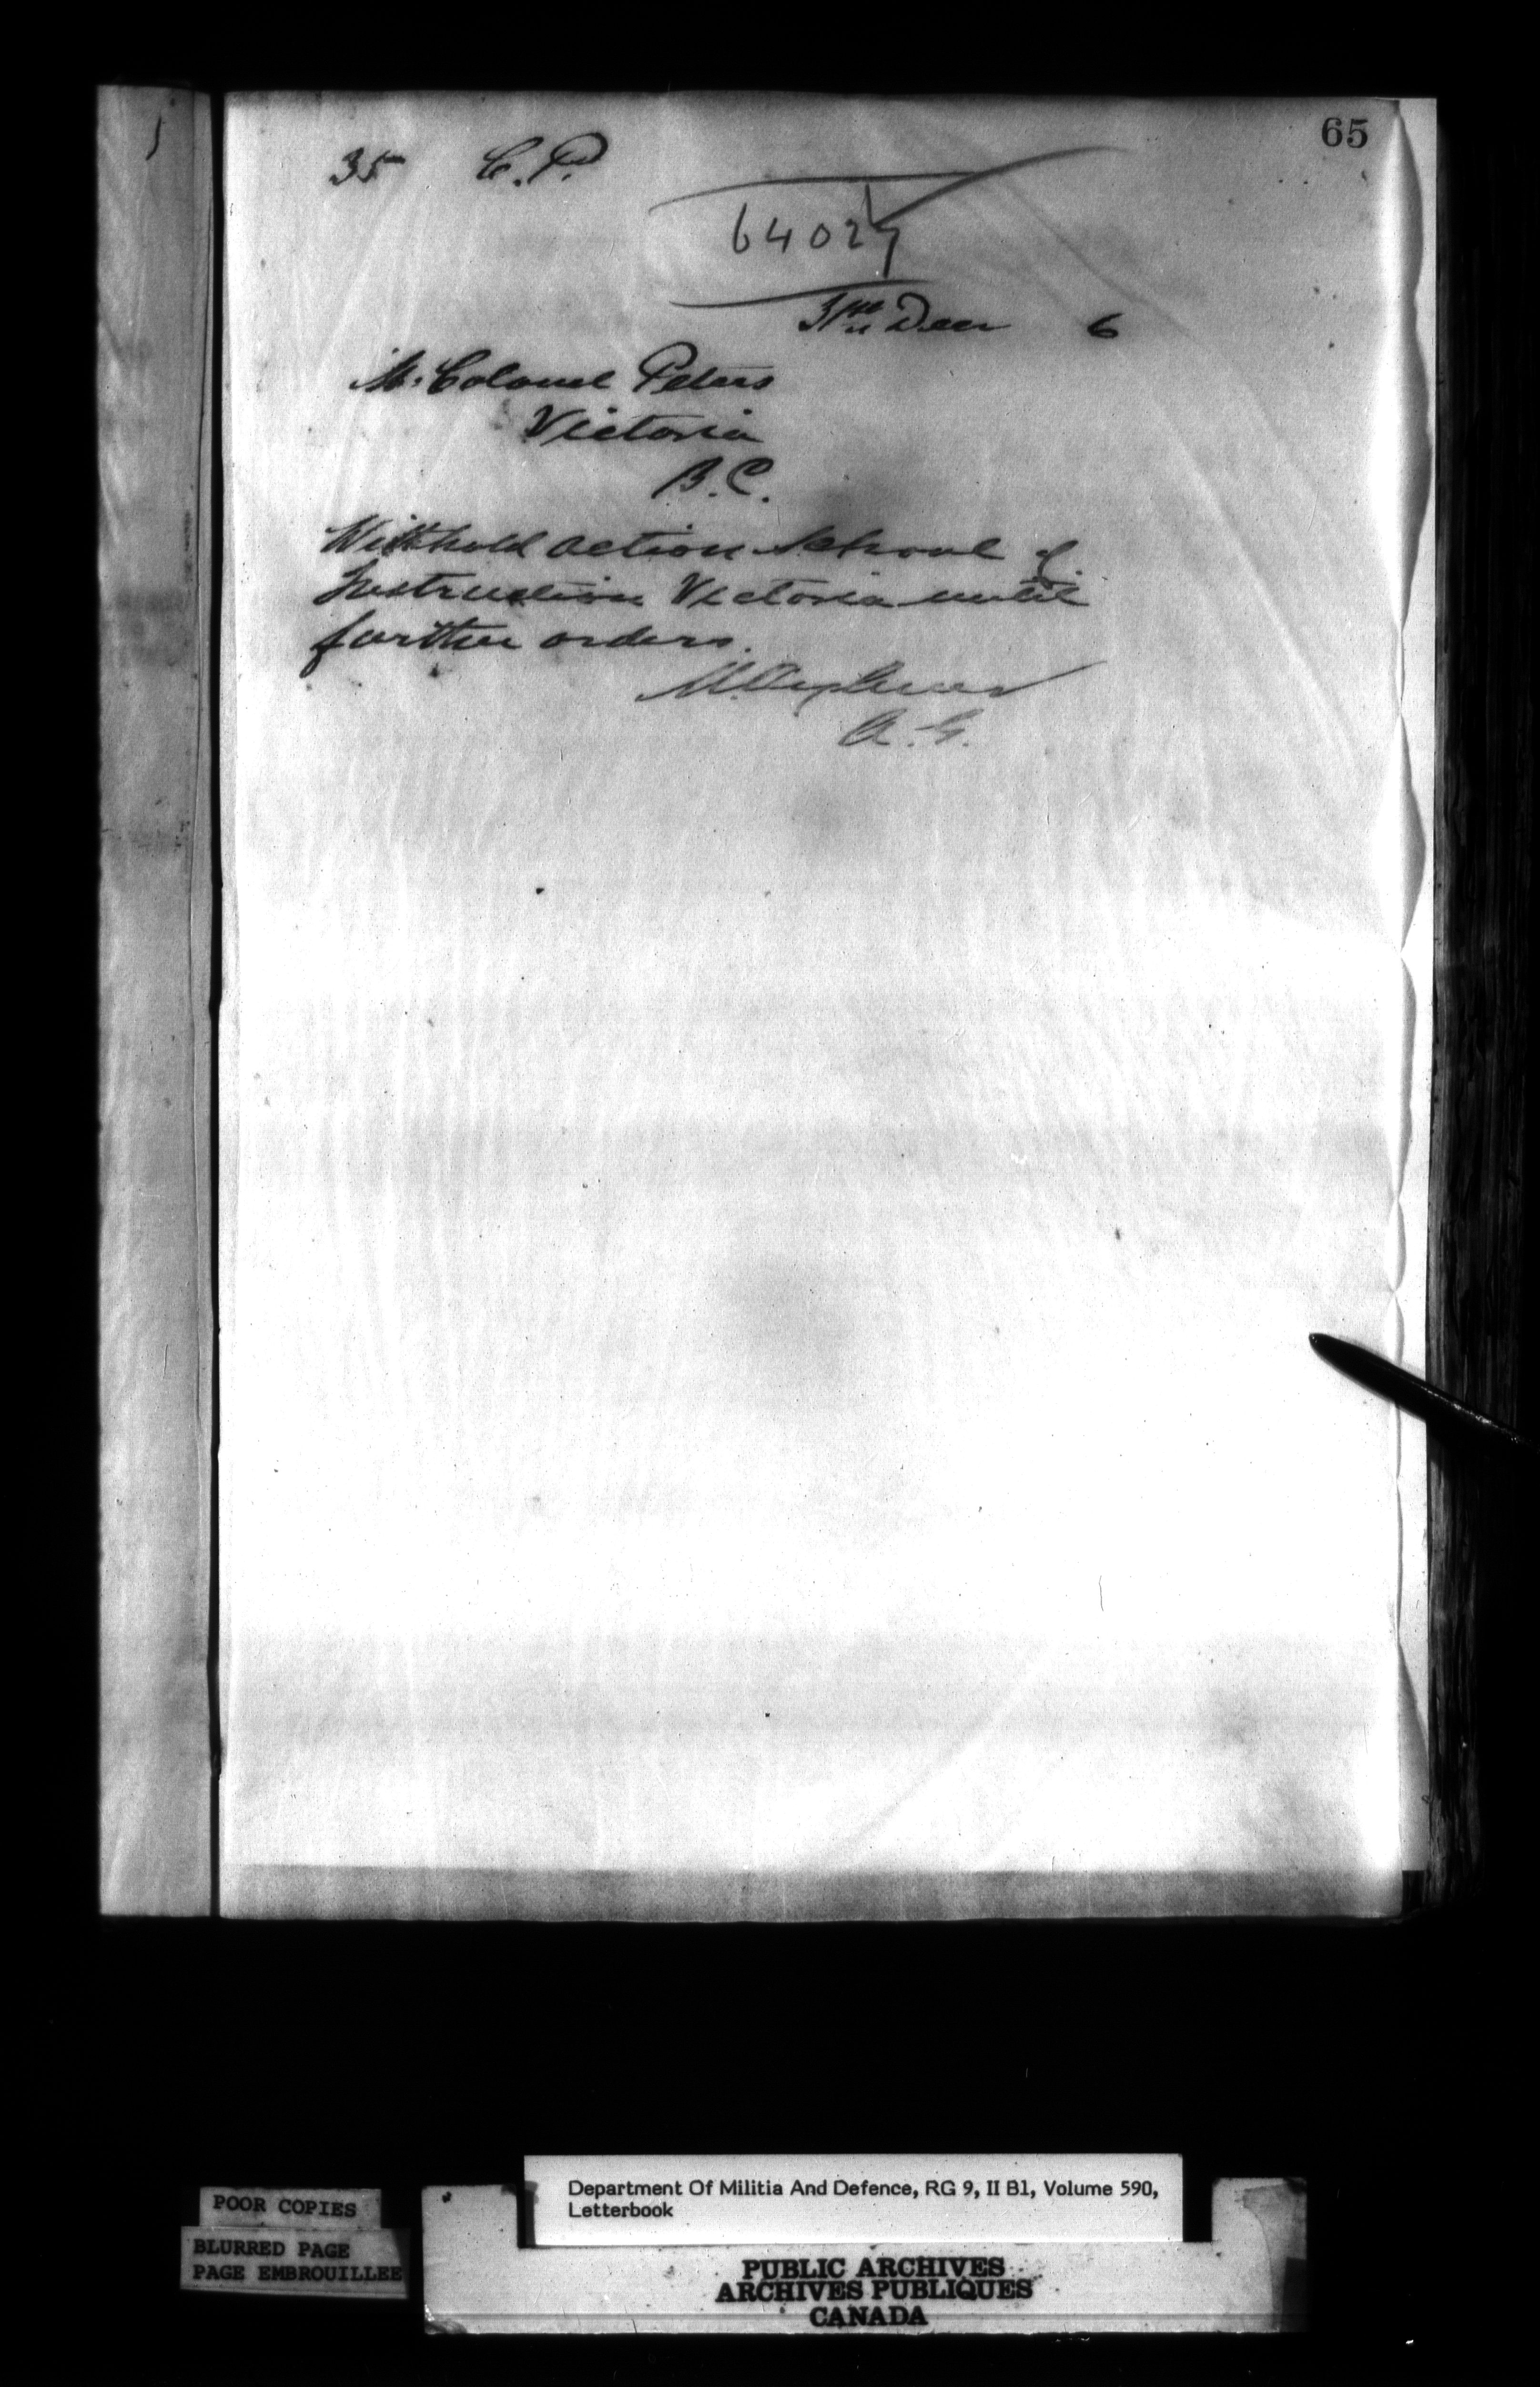 65
35 C.P.
64027
31st Decr 6
Lt. Colonel Peters
Victoria
B.C.
Withhold action School of
Instruction Victoria until
further orders.
A.G.
POOR COPIES
BLURRED PAGE
PAGE EMBROUILLEE
Department Of Militia And Defence, RG 9, II B1, Volume 590,
Letterbook
PUBLIC ARCHIVES
ARCHIVES PUBLIQUES
CANADA